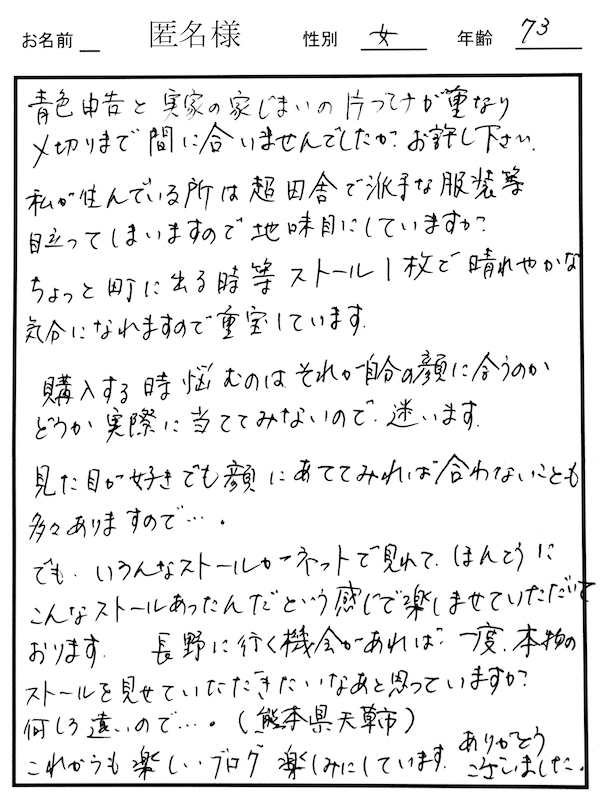 お名前 匿名様 性別 女 年齢 73
青色申告と実家の家じまいの片づけが重なり
〆切りまで間に合いませんでしたが、お許し下さい、
私が住んでいる所は超田舎で派手な服装等
目立ってしまいますので地味目にしていますが、
ちょっと町に出る時等ストール1枚で晴れやかな
気分になれますので重宝しています.
購入する時悩むのはそれが自分の顔に合うのか
どうか実際に当ててみないので、迷います.
見た目が好きでも顔にあててみれば合わないことも
多々ありますので…。
でも、いろんなストールがネットで見れて、ほんとうに
こんなストールあったんだという感じで楽しませていただいて
おります. 長野に行く機会があれば、一度、本物の
ストールを見せていただきたいなあと思っていますが、
何しろ遠いので…。(熊本県天草市)
これからも楽しいブログ楽しみにしています. ありがとう
ございました。